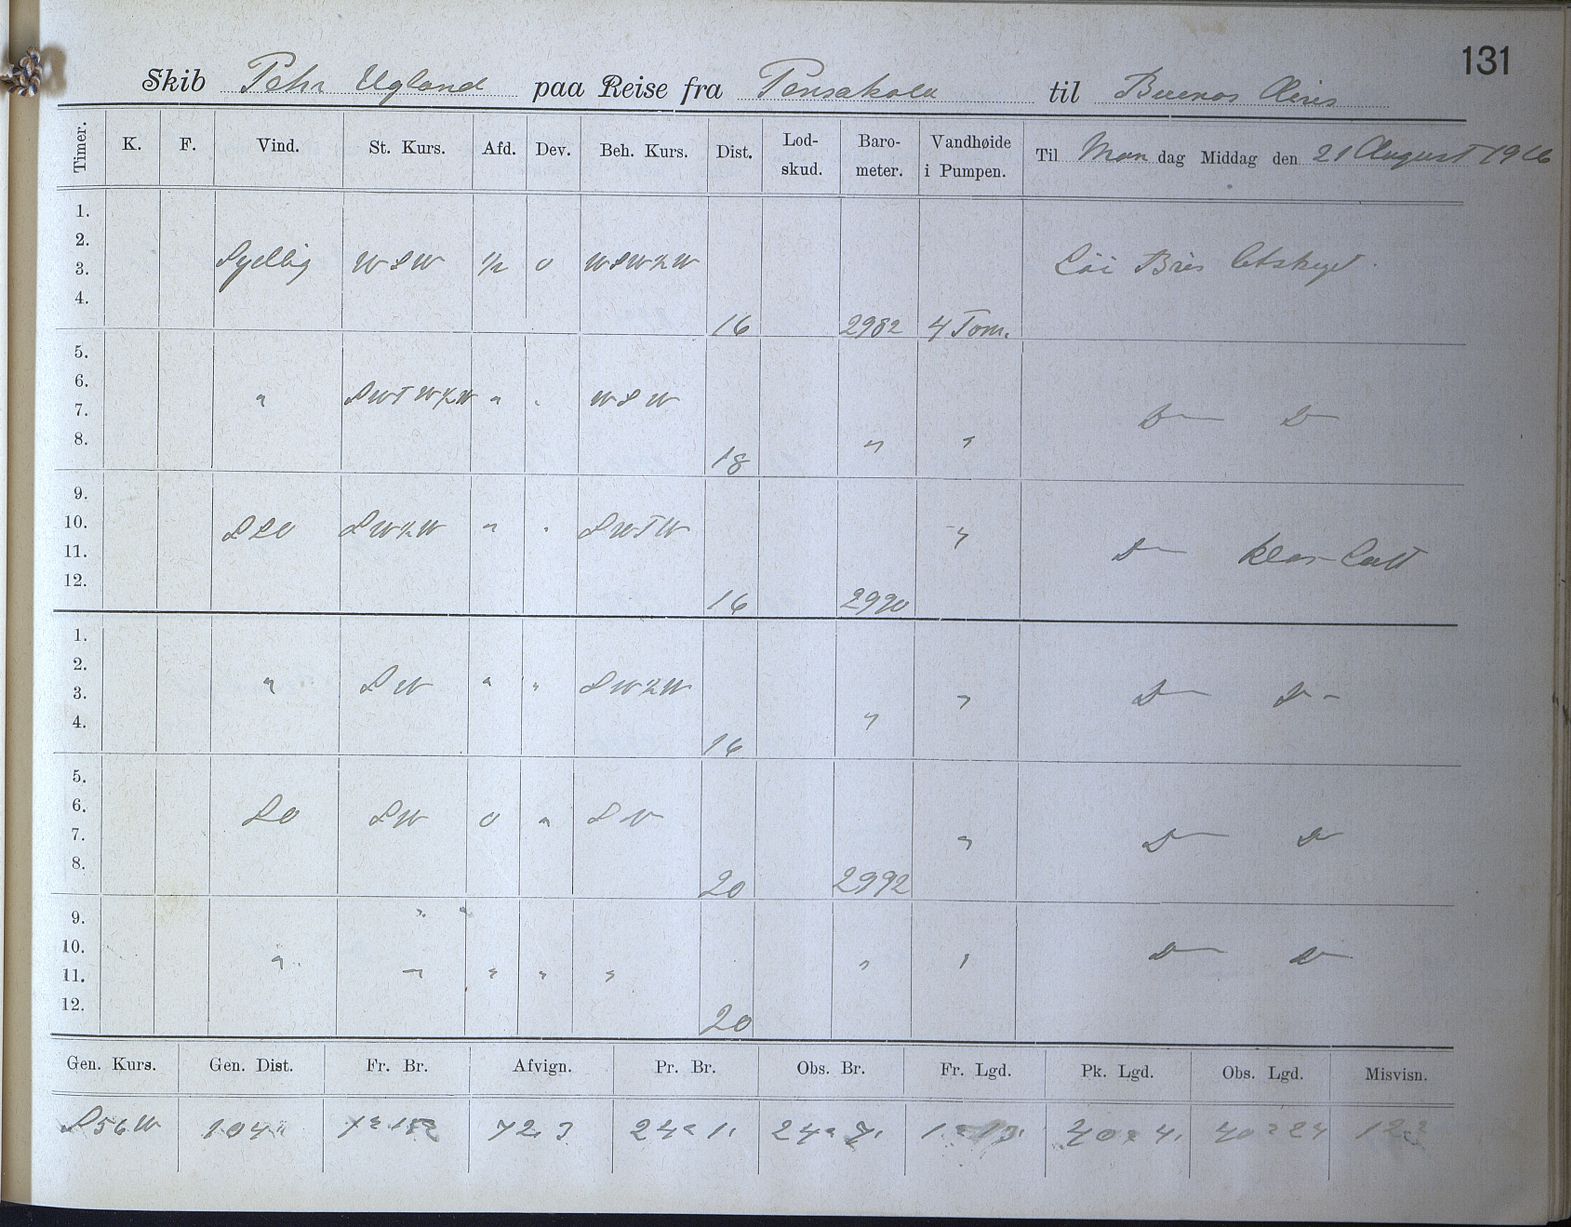 131
Skib Pehr Ugland paa Reise fra Pensakola til Buenos Aires
Timer. K. F. Vind. St. Kurs. Afd. Dev. Beh. Kurs. Dist. Lod-skud. Baro-meter. Vandhøide i Pumpen. Til Man dag Middag den 21 August 1916
1.
2.
3. Sydlig WSW ½ 0 WSW½W Löi Bris letskyet.
4. 16 2982 4 Tom.
5.
6.
7. " SWTW½W " " WSW D— D—
8. 18 " "
9.
10. SSO SW½W " " SWTW "
11. D— klar Luft
12. 16 2990
1.
2.
3. " SW " " SW½W " D— D—
4. 16 "
5.
6. SO SW 0 " SW
7. " D— D—
8. 20 2992
9.
10. " D— D—
11. " " " " " "
12. 20
Gen. Kurs. Gen. Dist. Fr. Br. Afvign. Pr. Br. Obs. Br. Fr. Lgd. Pk. Lgd. Obs. Lgd. Misvisn.
S56W 104 24° 1' 24° 7' 40° 4' 40° 24